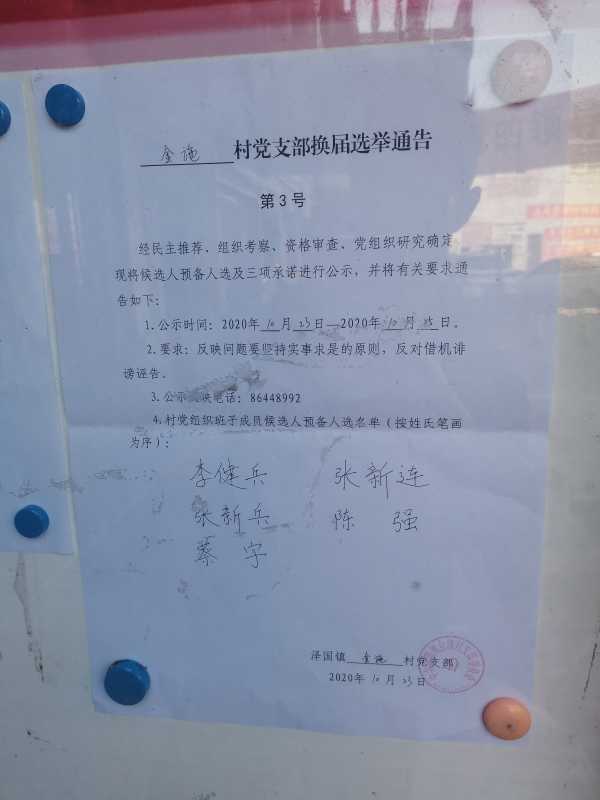 金施村党支部换届选举通告
第3号
经民主推荐、组织考察、资格审查、党组织研究确定,
现将候选人预备人选及三项承诺进行公示,并将有关要求通
告如下:
1.公示时间:2020年10月23日—2020年10月25日。
2.要求:反映问题要坚持实事求是的原则,反对借机诽
谤诬告。
3.公示反映电话:86448992
4.村党组织班子成员候选人预备人选名单(按姓氏笔画
为序):
李健兵 张新连
张新兵 陈强
蔡宇
泽国镇金施村党支部
2020年10月23日